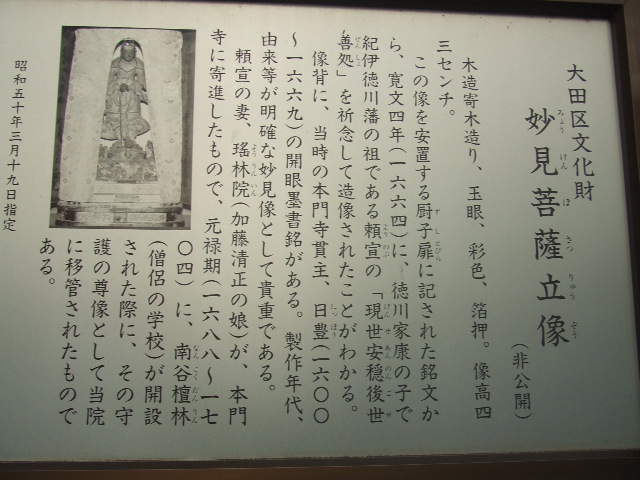 大田区文化財
妙見菩薩立像
みょうけんぼさつりゅうぞう
（非公開）
木造寄木造り、玉眼、彩色、箔押。像高四
三センチ。
この像を安置する厨子扉に記された銘文か
ら、寛文四年（一六六四）に、徳川家康の子で
紀伊徳川藩の祖である頼宣の「現世安穏後世
善処」を祈念して造像されたことがわかる。
像背に、当時の本門寺貫主、日豊（一六〇〇
～一六六九）の開眼墨書銘がある。製作年代、
由来等が明確な妙見像として貴重である。
頼宣の妻、瑤林院（加藤清正の娘）が、本門
寺に寄進したもので、元禄期（一六八八～一七
〇四）に、南谷檀林
（僧侶の学校）が開設
された際に、その守
護の尊像として当院
に移管されたもので
ある。
昭和五十年三月十九日指定